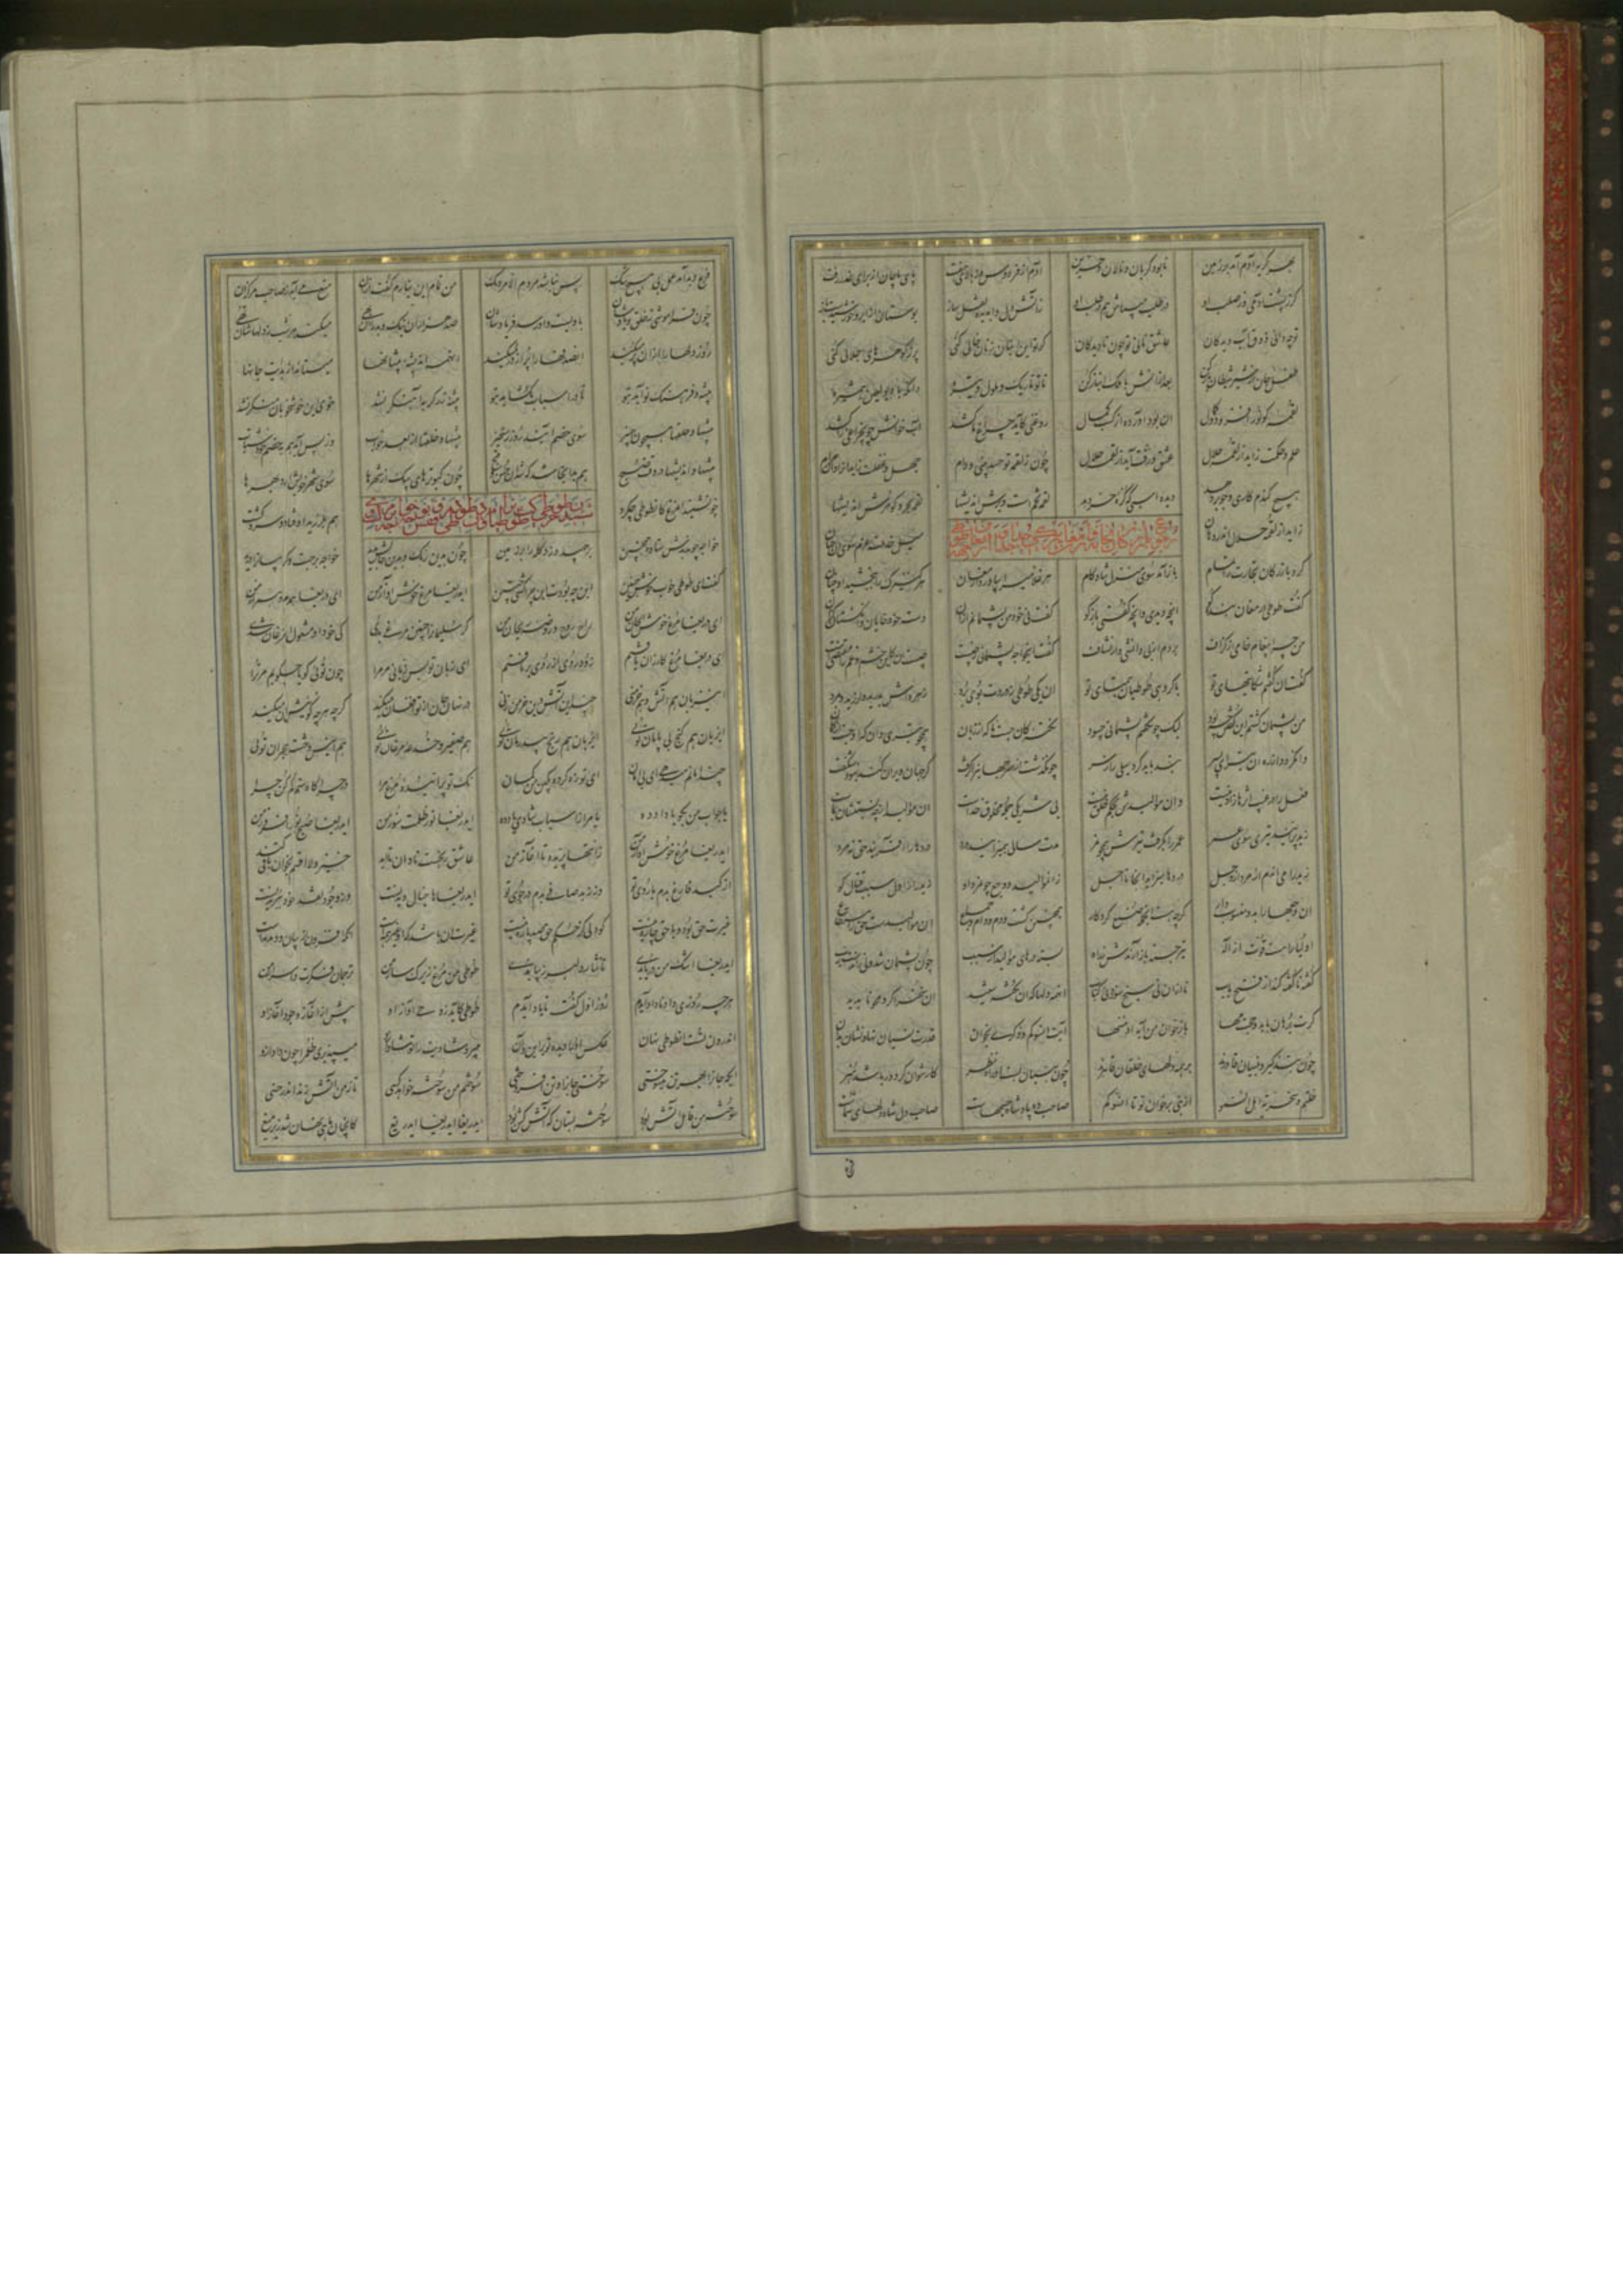 بهر گریه آدم آمد بر زمین تا بود گریان و نالان و حزین آدم از فردوس و از بالای هفت پای ماچان از برای عذر رفت
گر ز پشت آدمی وز صلب او در طلب میباش هم در طلب او ز آتش دل و آب دیده نقل ساز بوستان از ابر و خورشیدست باز
تو چه دانی ذوق آب دیدگان عاشق نانی تو چون نادیدگان گر تو این انبان ز نان خالی کنی پر ز گوهرهای اجلالی کنی
طفل جان از شیر شیطان باز کن بعد از آنش با ملک انباز کن تا تو تاریک و ملول و تیره دانکه با دیو لعین همشیره
لقمه کو نور افزود و کمال آن بود آورده از کسب حلال روغنی کاید چراغ ما کشد آب خوانش چون چراغی را کشد
علم و حکمت زاید از لقمه حلال عشق و رقت آید از لقمه حلال چون ز لقمه تو حسد بینی و دام جهل و غفلت زاید آنرا دان حرام
هیچ گندم کاری و جو بر دهد دیده اسبی که کره خر دهد لقمه تخمست و برش اندیشها لقمه بحر و گوهرش اندیشها
زاید از لقمه حلال اندر دهان میل خدمت عزم سوی آن جهان
کرد بازرگان تجارت را تمام باز آمد سوی منزل شادکام هر غلامی را بیاورد ارمغان هر کنیزک را ببخشید او نشان
گفت طوطی ارمغان بنده کو آنچه دیدی و آنچه گفتی بازگو گفت نی خود من پشیمانم از آن دست خود خایان و انگشتان گزان
من چرا پیغام خامی از گزاف بردم از بی دانشی و از نشاف گفت ای خواجه پشیمانی ز چیست چیست آن کین خشم و غم را مقتضیست
گفت آن گفتم شکایتهای تو با گروهی طوطیان همتای تو آن یکی طوطی ز دردت بوی برد زهره اش بدرید و لرزید و بمرد
من پشیمان گشتم این گفتن چه بود لیک چون گفتم پشیمانی چه سود نکته کان جست ناگه از زبان همچو تیری دان که آن جست از کمان
وانگردد از ره آن تیر ای پسر بند باید کرد سیلی را ز سر چون گذشت از سر جهانی را گرفت گر جهان ویران کند نبود شگفت
فعل را در غیب اثرها زادنیست وان موالیدش بحکم خلق نیست بی شریکی جمله مخلوق خداست آن موالید ارچه نسبتشان بماست
زید پرانید تیری سوی عمرو عمرو را بگرفت تیرش همچو نمر مدت سالی همی زایید درد دردها را آفریند حق نه مرد
زید رامی آن دم ار مرد از وجل دردها میزاید آنجا تا اجل زان موالید وجع چون مرد او زید را ز اول سبب قتال گو
آن وجعها را بدو منسوب دار گرچه هست آن جمله صنع کردگار همچنین کشت و دم و دام و جماع آن موالیدست حق را مستطاع
اولیا را هست قدرت از اله تیر جسته باز آرندش ز راه بسته درهای موالید از سبب چون پشیمان شد ولی زان دست رب
گفته ناگفته کند از فتح باب تا از آن نی سیخ سوزد نی کباب از همه دلها که آن نکته شنید آن سخن را کرد محو و ناپدید
گرت برهان باید و حجت مها باز خوان من آیة او ننسها آیت انسوکم ذکری بخوان قدرت نسیان نهادنشان بدان
چون بتذکیر و بنسیان قادرند بر همه دلهای خلقان قاهرند چون بنسیان بست او راه نظر کار نتوان کرد ور باشد هنر
خلتم سخریة اهل السمو از نبی برخوان تو تا انسوکم صاحب ده پادشاه جسمهاست صاحب دل شاه دلهای شماست
فرع دید آمد عمل بی هیچ شک پس نباشد مردم الا مردمک من تمام این نیارم گفت از آن منع می آید ز صاحب مرکزان
چون فراموشی خلق و یادشان با ویست و او رسد فریادشان صد هزاران نیک و بد را آن بهی میکند هر شب ز دلهاشان تهی
روز دلها را از آن پر میکند آن صدفها را پر از در میکند آن همه اندیشه پیشانها میشناسد از هدایت جانها
پیشه و فرهنگ تو آید بتو تا در اسباب بگشاید بتو پیشه زرگر بآهنگر نشد خوی این خوشخو بآن منکر نشد
پیشها و خلقها همچون جهیز سوی خصم آیند روز رستخیز پیشها و خلقها از بعد خواب واپس آید هم بخصم خود شتاب
پیشها و اندیشها در وقت صبح هم بدانجا شد که بود آن حسن و قبح چون کبوترهای پیک از شهرها سوی شهر خویش آرد بهرها
چون شنید آن مرغ کان طوطی چه کرد هم بلرزید اوفتاد و گشت سرد
شنیدن آن طوطی حرکت آن طوطیان
خواجه چون دیدش فتاده همچنین بر جهید و زد کله را بر زمین چون بدین رنگ و بدین حالش بدید خواجه برجست و گریبان را درید
گفت ای طوطی خوب خوش حنین این چه بودت این چرا گشتی چنین ای دریغا مرغ خوش آواز من ای دریغا همدم و همراز من
ای دریغا مرغ خوش الحان من راح روح و روضه و ریحان من گر سلیمان را چنین مرغی بدی کی خود او مشغول آن مرغان شدی
ای دریغا مرغ کارزان یافتم زود روی از روی او بر تافتم ای زبان تو بس زیانی مر مرا چون توئی گویا چه گویم مر ترا
ای زبان هم آتش و هم خرمنی چند این آتش درین خرمن زنی در نهان جان از تو افغان میکند گرچه هر چه گوئیش آن میکند
ای زبان هم گنج بی پایان توئی ای زبان هم رنج بی درمان توئی هم صفیر و خدعه مرغان توئی هم انیس وحشت هجران توئی
چند امانم میدهی ای بی امان ای تو زه کرده بکین من کمان نک بپرانیده مرغ مرا در چراگاه ستم کم کن چرا
یا جواب من بگو یا داد ده یا مرا ز اسباب شادی یاد ده ای دریغا نور ظلمت سوز من ای دریغا صبح روز افروز من
ای دریغا مرغ خوش پرواز من ز انتها پریده تا آغاز من عاشق رنجست نادان تا ابد خیز لا اقسم بخوان تا فی کبد
از کبد فارغ بدم با روی تو وز زبد صافی بدم در جوی تو ای دریغاها خیال دیدنست وز وجود نقد خود ببریدنست
غیرت حق بود و با حق چاره نیست کو دلی کز حکم حق صد پاره نیست غیرت آن باشد که او غیر همه است آنکه افزون از بیان و دمدمه است
ای دریغا اشک من دریا بدی تا نثار دلبر زیبا بدی طوطی من مرغ زیرکسار من ترجمان فکرت و اسرار من
هر چه روزی داد و ناداد آیدم او ز اول گفت تا یاد آیدم طوطی کاید ز وحی آواز او پیش از آغاز وجود آغاز او
اندرون تست آن طوطی نهان عکس او را دیده تو بر این و آن میبرد شادیت را تو شاد ازو میپذیری ظلم را چون داد ازو
ایکه جان را بهر تن میسوختی سوختی جان را و تن افروختی سوختم من سوخته خواهد کسی تا ز من آتش زند اندر خسی
سوخته چون قابل آتش بود سوخته بستان که آتش کش بود ای دریغا ای دریغا ای دریغ کانچنان ماهی نهان شد زیر میغ